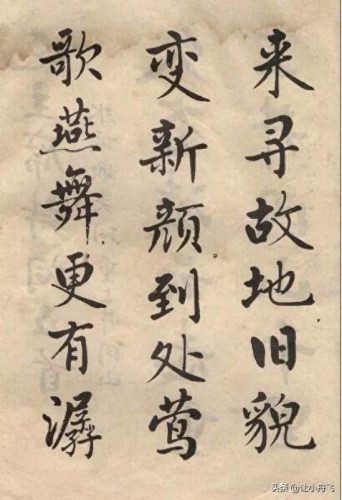 来寻故地旧貌
变新颜到处莺
歌燕舞更有潺
头条 @让小丹飞